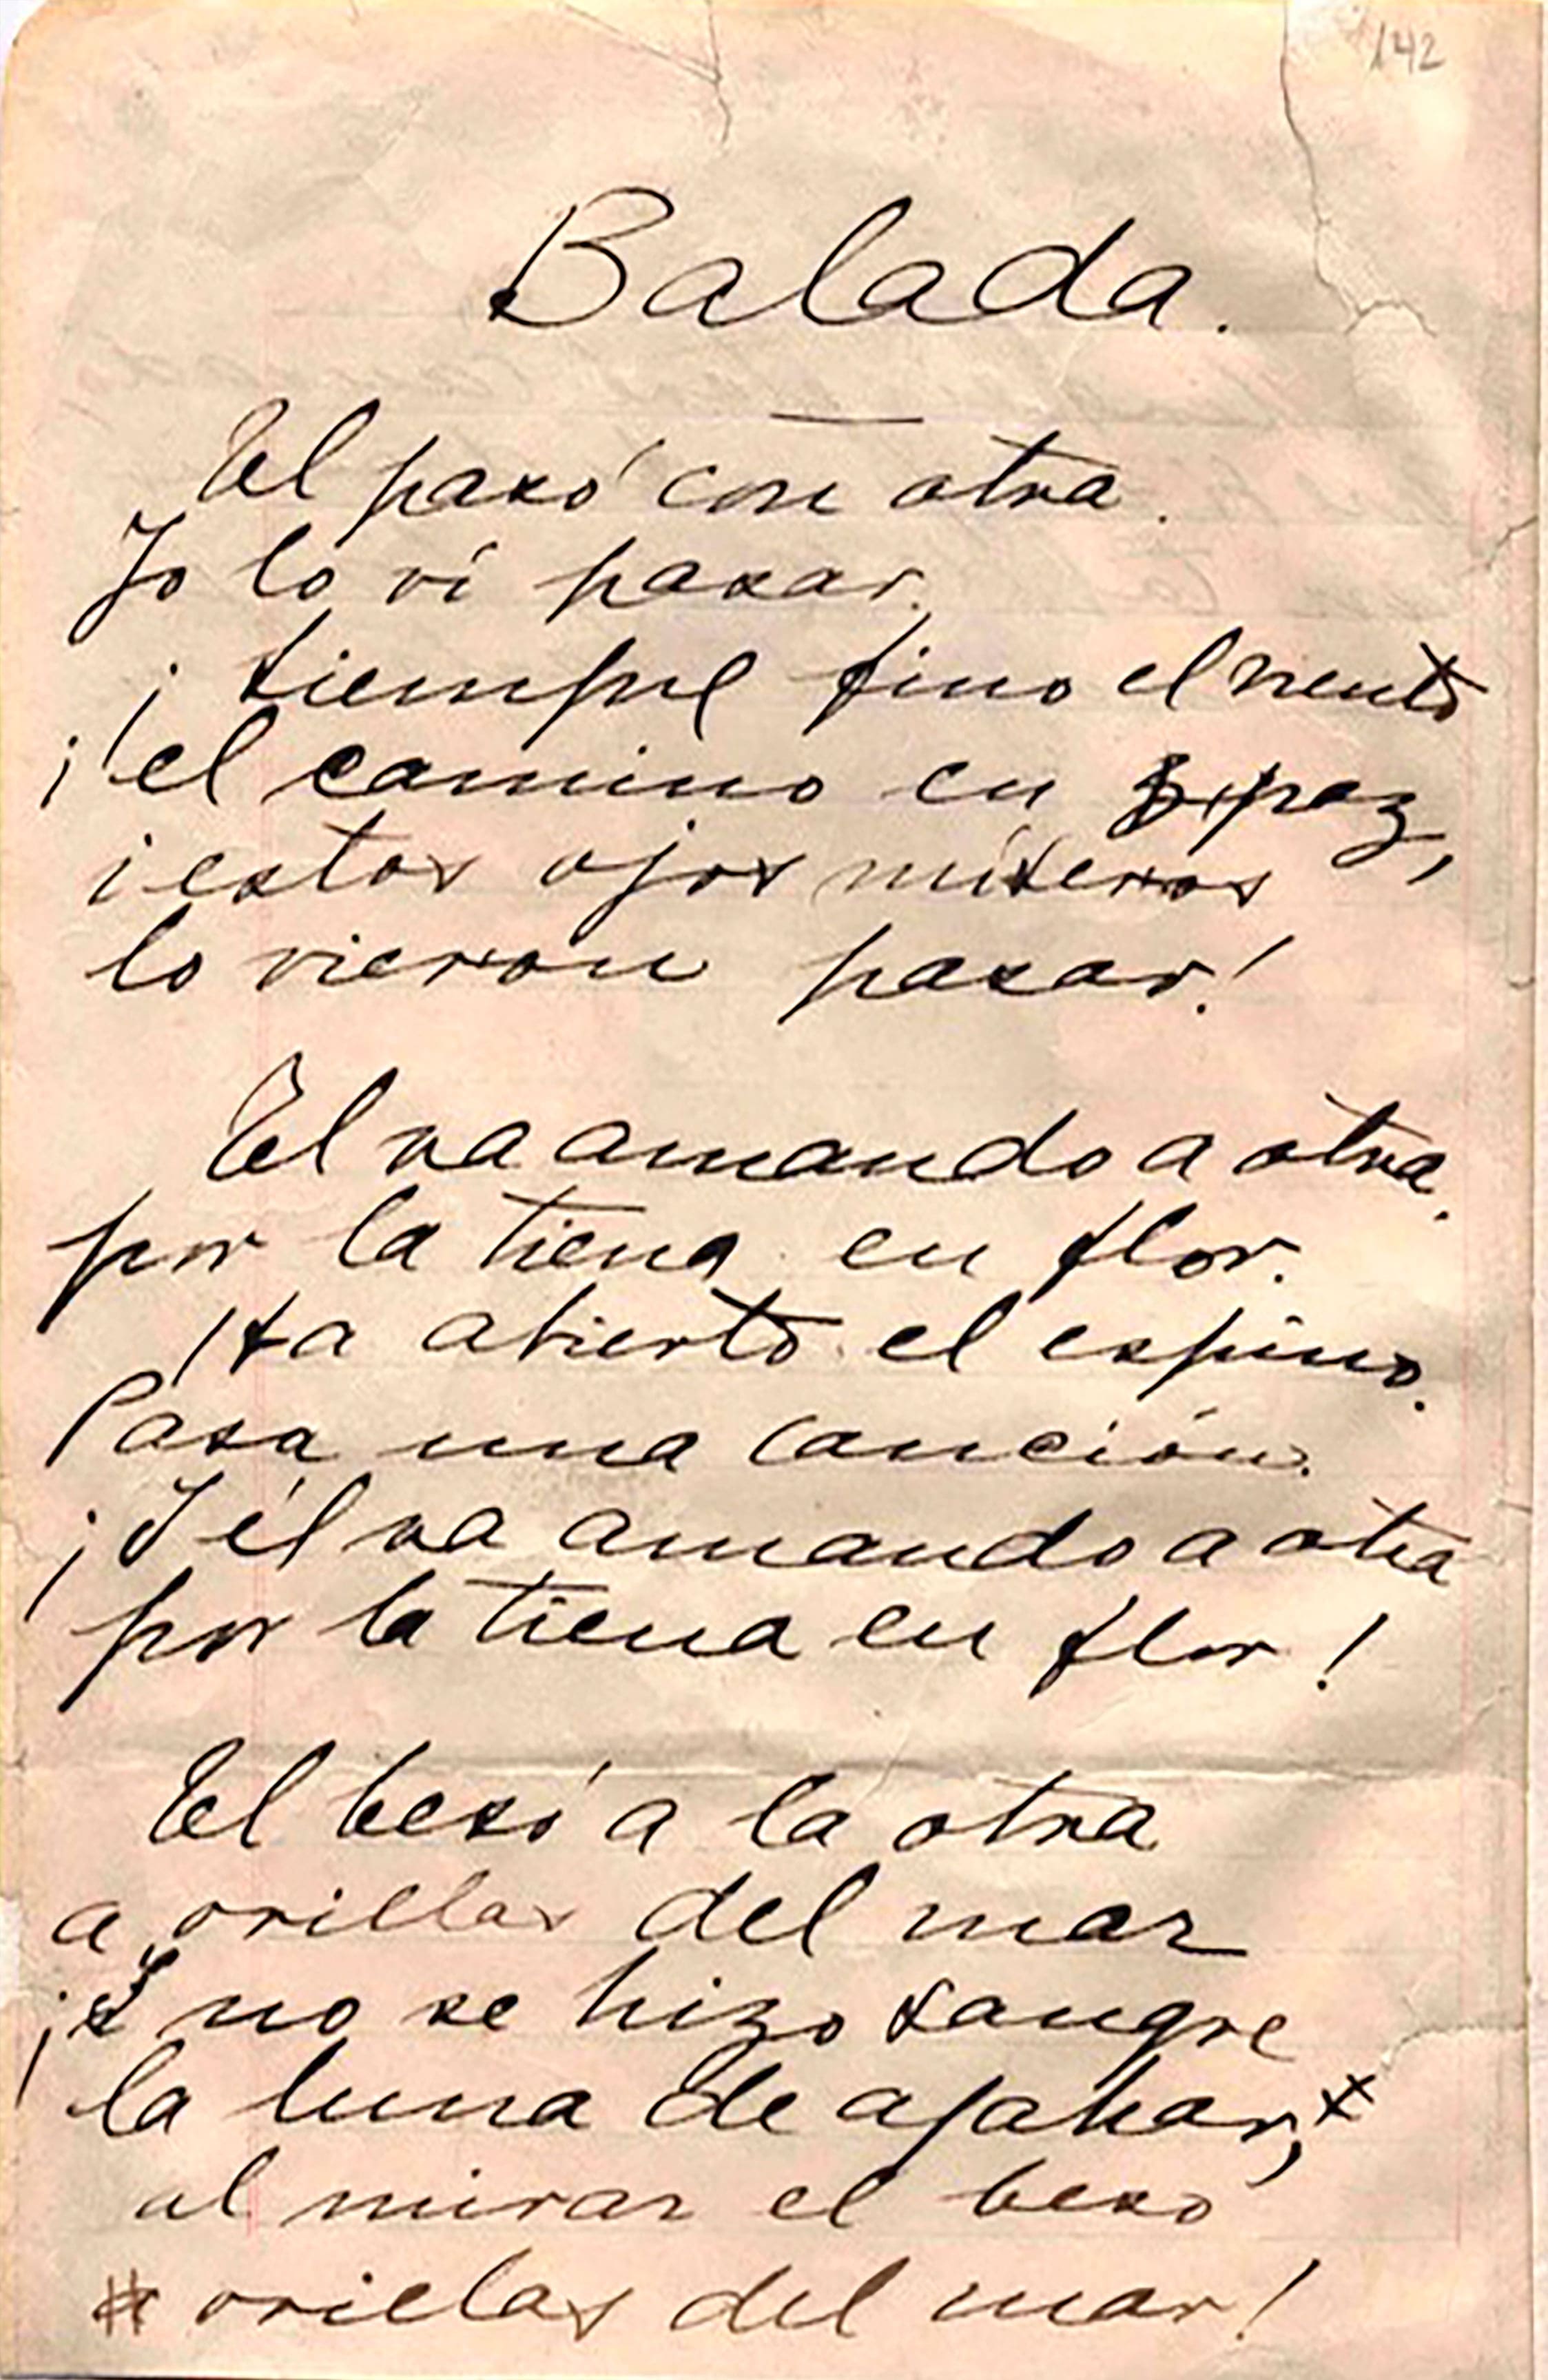 142
Balada.
El pasó con otra.
Yo lo ví pasar.
¡Siempre fino el viento
i el camino en paz,
i estos ojos míseros
lo vieron pasar!
El va amando a otra.
por la tierra en flor.
Ha abierto el espino.
Pasa una canción.
¡I él va amando a otra
por la tierra en flor!
El besó a la otra
a orillas del mar
¡I no se hizo sangre
la luna de azahar,
al mirar el beso
orillas del mar!